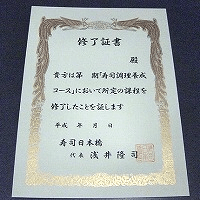 修了証書
殿
貴方は第　期「寿司調理養成
コース」において所定の課程を
修了したことを証します
平成　年　月　日
寿司日本橋
代表　浅井隆司